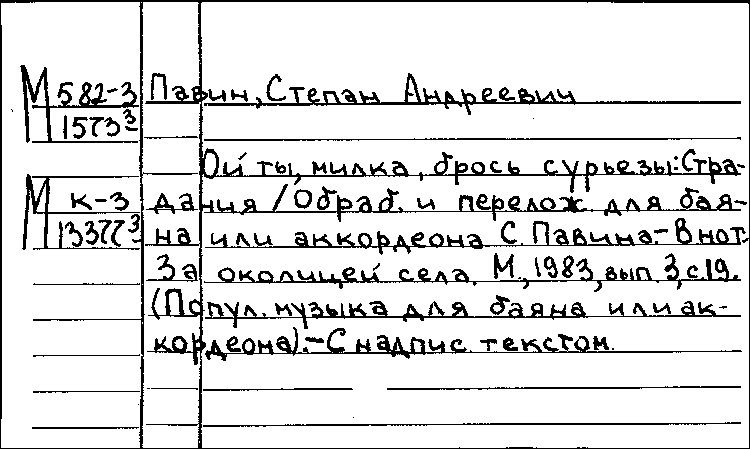 М 582-3 Павин, Степан Андреевич
1573³
Ой ты, милка, брось сурьезы: Стра-
М К-3 дания / Обраб. и перелож. для бая-
13377³ на или аккордеона С. Павина.- В нот.:
За околицей села. М., 1983, вып. 3, с. 19.
(Попул. музыка для баяна или ак-
кордеона).- С надпис. текстом.